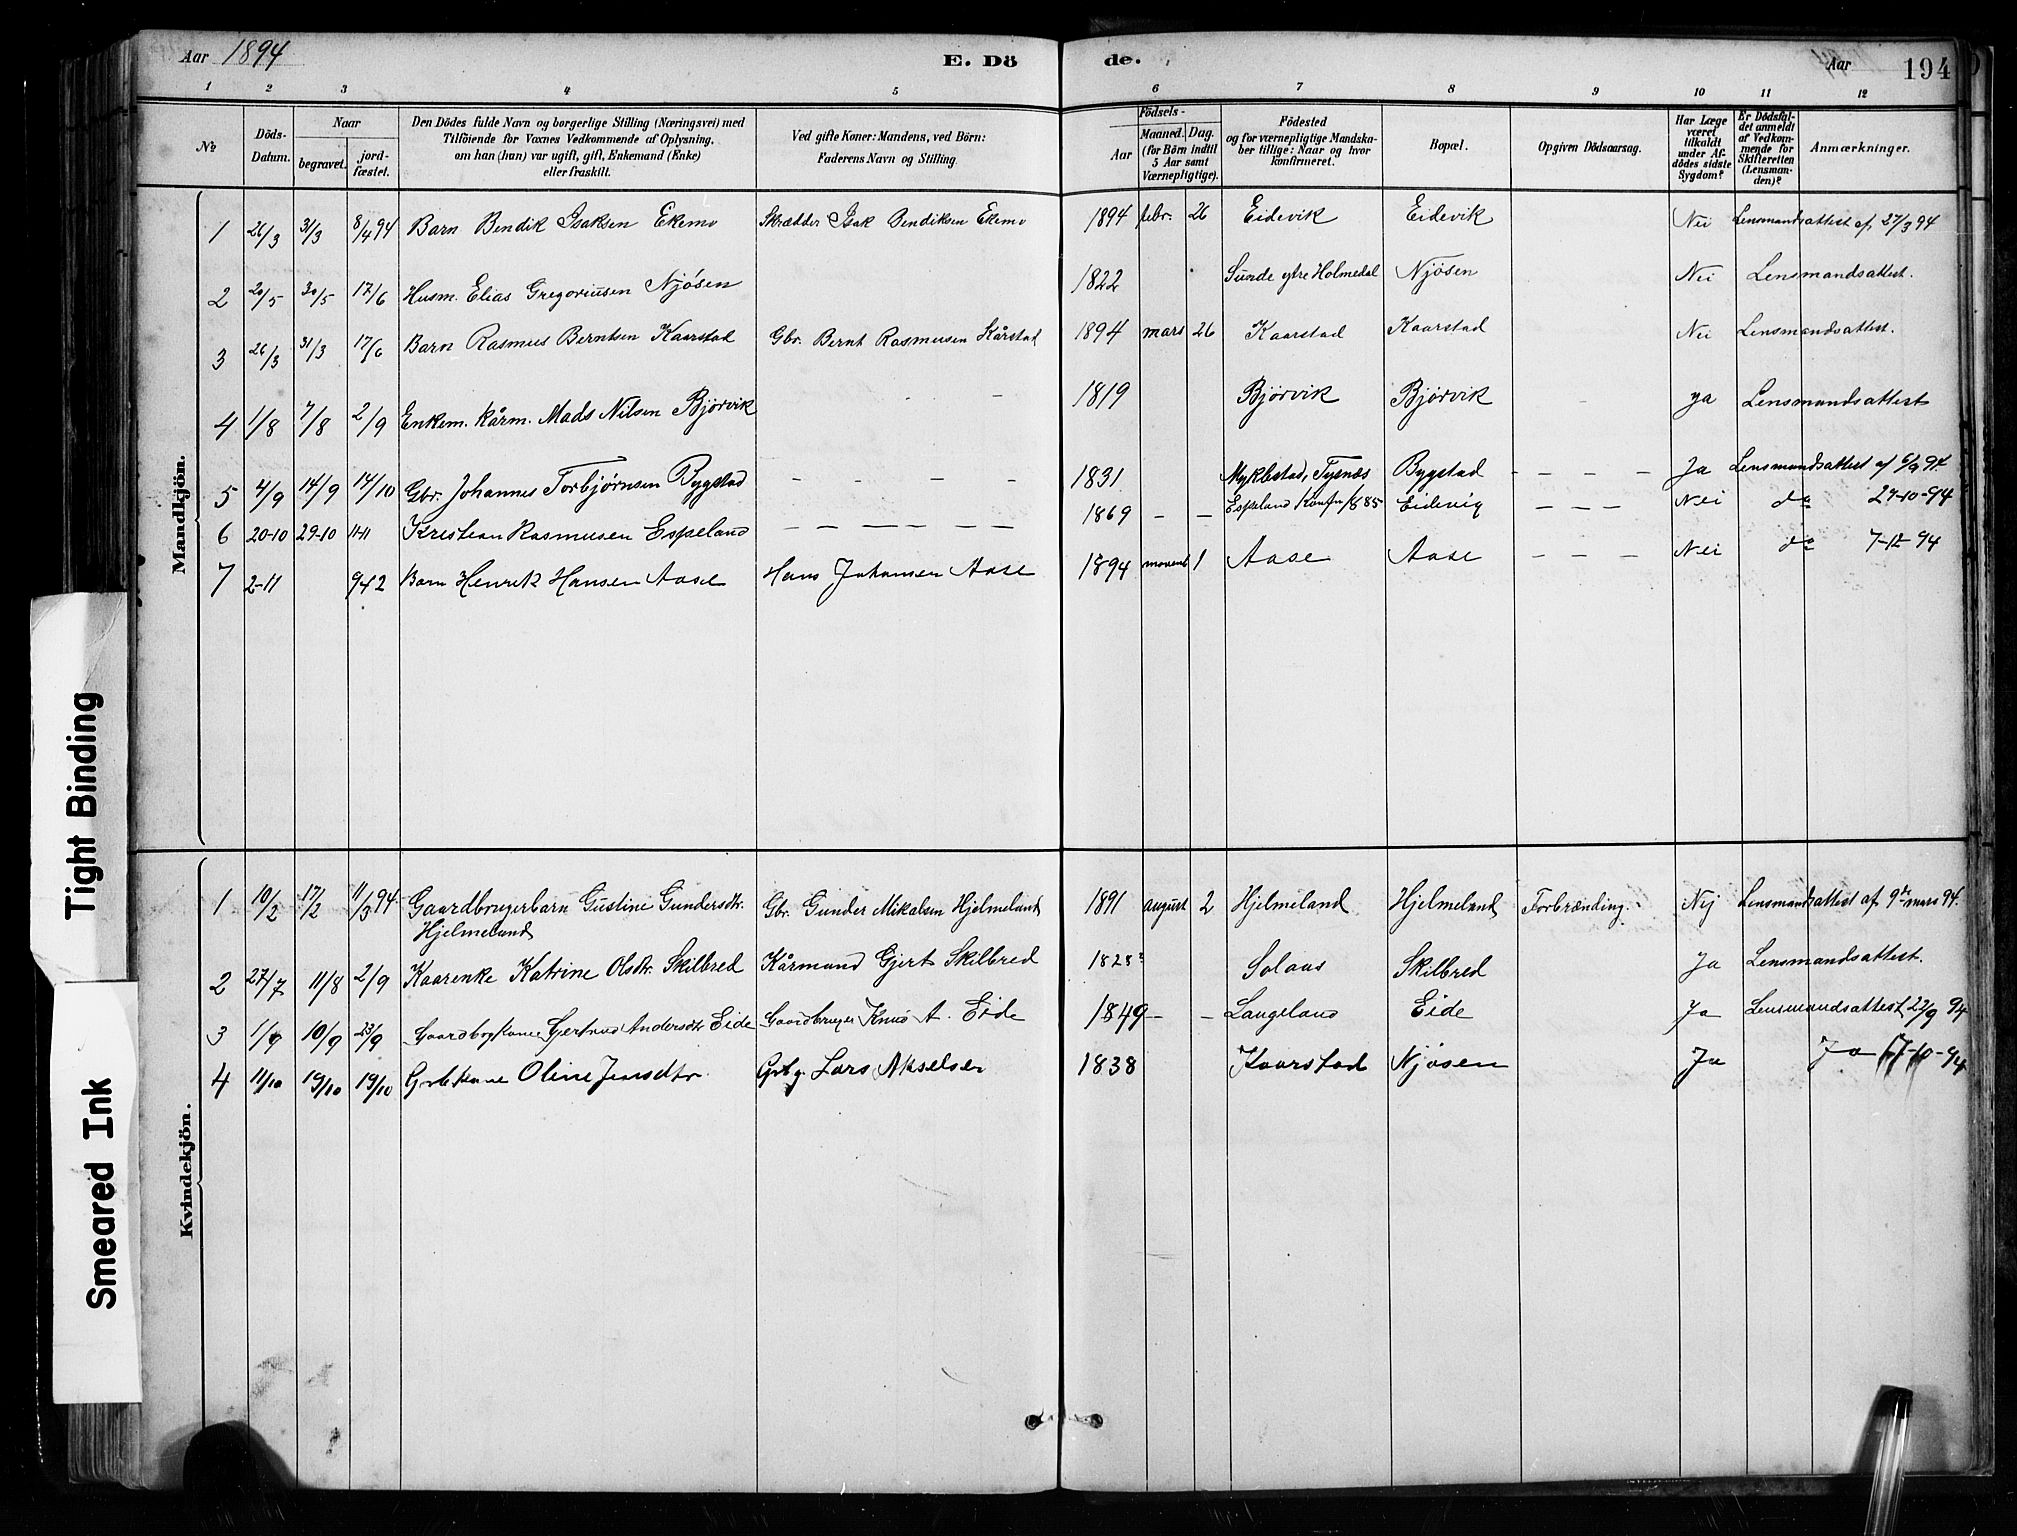 Aar 1894 E. Dö de. Aar 194
1 2 3 4 5 6 7 8 9 10 11 12
№
Döds-Datum.
Naar
begravet.
jord-fæstet.
Den Dödes fulde Navn og borgerlige Stilling (Næringsvei) med
Tilföiende for Voxnes Vedkommende af Oplysning,
om han (hun) var ugift, gift, Enkemand (Enke)
eller fraskilt.
Ved gifte Koner: Mandens, ved Börn:
Faderens Navn og Stilling.
Födsels-
Aar
Maaned. Dag.
(for Börn indtil
5 Aar samt
Værnepligtige).
Födested
og for værnepligtige Mandska-
ber tillige: Naar og hvor
konfirmeret.
Bopæl.
Opgiven Dödsaarsag.
Har Læge
været
tilkaldt
under Af-
dödes sidste
Sygdom?
Er Dödsfal-
det anmeldt
af Vedkom-
mende for
Skifteretten
(Lensman-
den)?
Anmærkninger.
Mandkjön.
1 26/3 31/3 8/4 94 Barn Bendik Isaksen Ekemo Skrædder Isak Bendiksen Ekemo 1894 febr. 26 Eidevik Eidevik Nei Lensmandsattest af 27/3 94
2 20/5 30/5 17/6 Husm. Elias Gregoriusen Njøsen 1822 Sunde ytre Holmedal Njøsen Nei Lensmandsattest.
3 26/3 31/3 17/6 Barn Rasmus Berntsen Kaarstad Gbr. Bernt Rasmusen Kårstad 1894 mars 26 Kaarstad Kaarstad Nei Lensmandsattest.
4 1/8 7/8 2/9 Enkem. kårm. Mads Nilsen Bjørvik 1819 Bjørvik Bjørvik ja Lensmandsattest
5 4/9 14/9 14/10 Gbr. Johannes Torbjørnsen Bygstad - - - - 1831 Myklestad, Tysnæs Bygstad - - - - Ja Lensmandsattest af 6/9 94
6 20-10 29-10 11-11 Kristian Rasmusen Espeland - - - - - 1869 - - Espeland Eidevig - - - Nei do 27-10-94
7 2-11 Barn Henrik Hansen Aase Hans Johansen Aase 1894 1 Aase Aase - - - Nei do 7-12 94
Kvindekjön.
1 10/2 17/2 11/3 94 Gaardbrugerbarn Gustine Gundersdtr. Gbr. Gunder Mikalsen Hjelmeland 1891 august 2 Hjelmeland Hjelmeland Forbrænding. Nej Lensmandsattest af 9de mars 94.
Hjelmeland
2 27/7 11/8 2/9 Kaarenke Katrine Olsdtr. Skilbred Kårmand Gjert Skilbred 1828 Solaas Skilbred Ja Lensmandsattest.
3 1/9 10/9 23/9 Gjertrud Andersdtr Eide Gaardbruger Knud A. Eide 1849 - - Langeland Eide Ja Lensmandsattest 22/9 94
4 11/10 19/10 19/10 Oline Jensdtr. Lars Akselsen 1838 Kaarstad Njøsen Ja Ja 17-10-94
Tight Binding
Smeared Ink